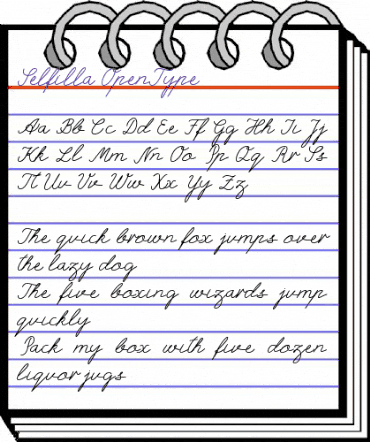 Selfilla OpenType
Aa Bb Cc Dd Ee Ff Gg Hh Ii Jj
Kk Ll Mm Nn Oo Pp Qq Rr Ss
Tt Uu Vv Ww Xx Yy Zz
The quick brown fox jumps over
the lazy dog
The five boxing wizards jump
quickly
Pack my box with five dozen
liquor jugs